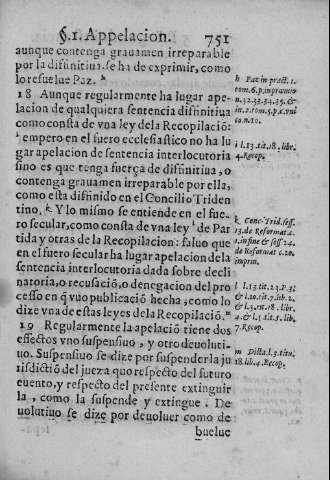 §. 1. Appelacion. 751
aunque contenga grauamen irreparable
por la difinitiua, se ha de exprimir, como
lo resuelue Paz. h
18 Aunque regularmente ha lugar ape-
lacion de qualquiera sentencia difinitiua
como consta de vna ley dela Recopilaciõ: i
empero en el fuero ecclesiastico no ha lu
gar apelacion de sentencia interlocutoria
sino es que tenga fuerça de difinitiua, o
contenga grauamen irreparable por ella,
como esta difinido en el Concilio Triden
tino. k Y lo mismo se entiende en el fue-
ro secular, como consta de vna ley l de Par
tida y otras de la Recopilacion: saluo que
en el fuero secular ha lugar apelacion dela
sentencia interlocutoria dada sobre decli
natoria, o recusaciõ, o denegacion del pro
cesso en q̃ vuo publicació hecha, como lo
dize vna de estas leyes dela Recopilaciõ. m
19 Regularmente la apelació tiene dos
effectos vno suspensiuo, y otro deuoluti-
uo. Suspensiuo se dize por suspender la ju
risdictiõ del juez a quo respecto del futuro
euento, y respecto del presente extinguir
la, como la suspende y extingue. De
uolutiuo se dize por deuoluer como de
buelue
h Paz in pract. 1.
tom. 6. p. in pramio
n. 32. 33. 54. 35. &
in 2. tom. 5. p. c. vni
co. n. 10.
i l. 13. tit. 18. libr.
4. Recop.
k Conc. Trid. sess.
13. de Reformat. c.
1. in fine & sess 24.
de Reformat c. 20.
in prin.
l l. 13. tit. 23. p. 3.
& l. 10. tit. 5. lib. 2.
& l. 3. tit. 18. libr.
4. & l. 1. tit. 5. lib.
7. Recop.
m Dicta l. 3. titu.
18. lib. 4. Recop.